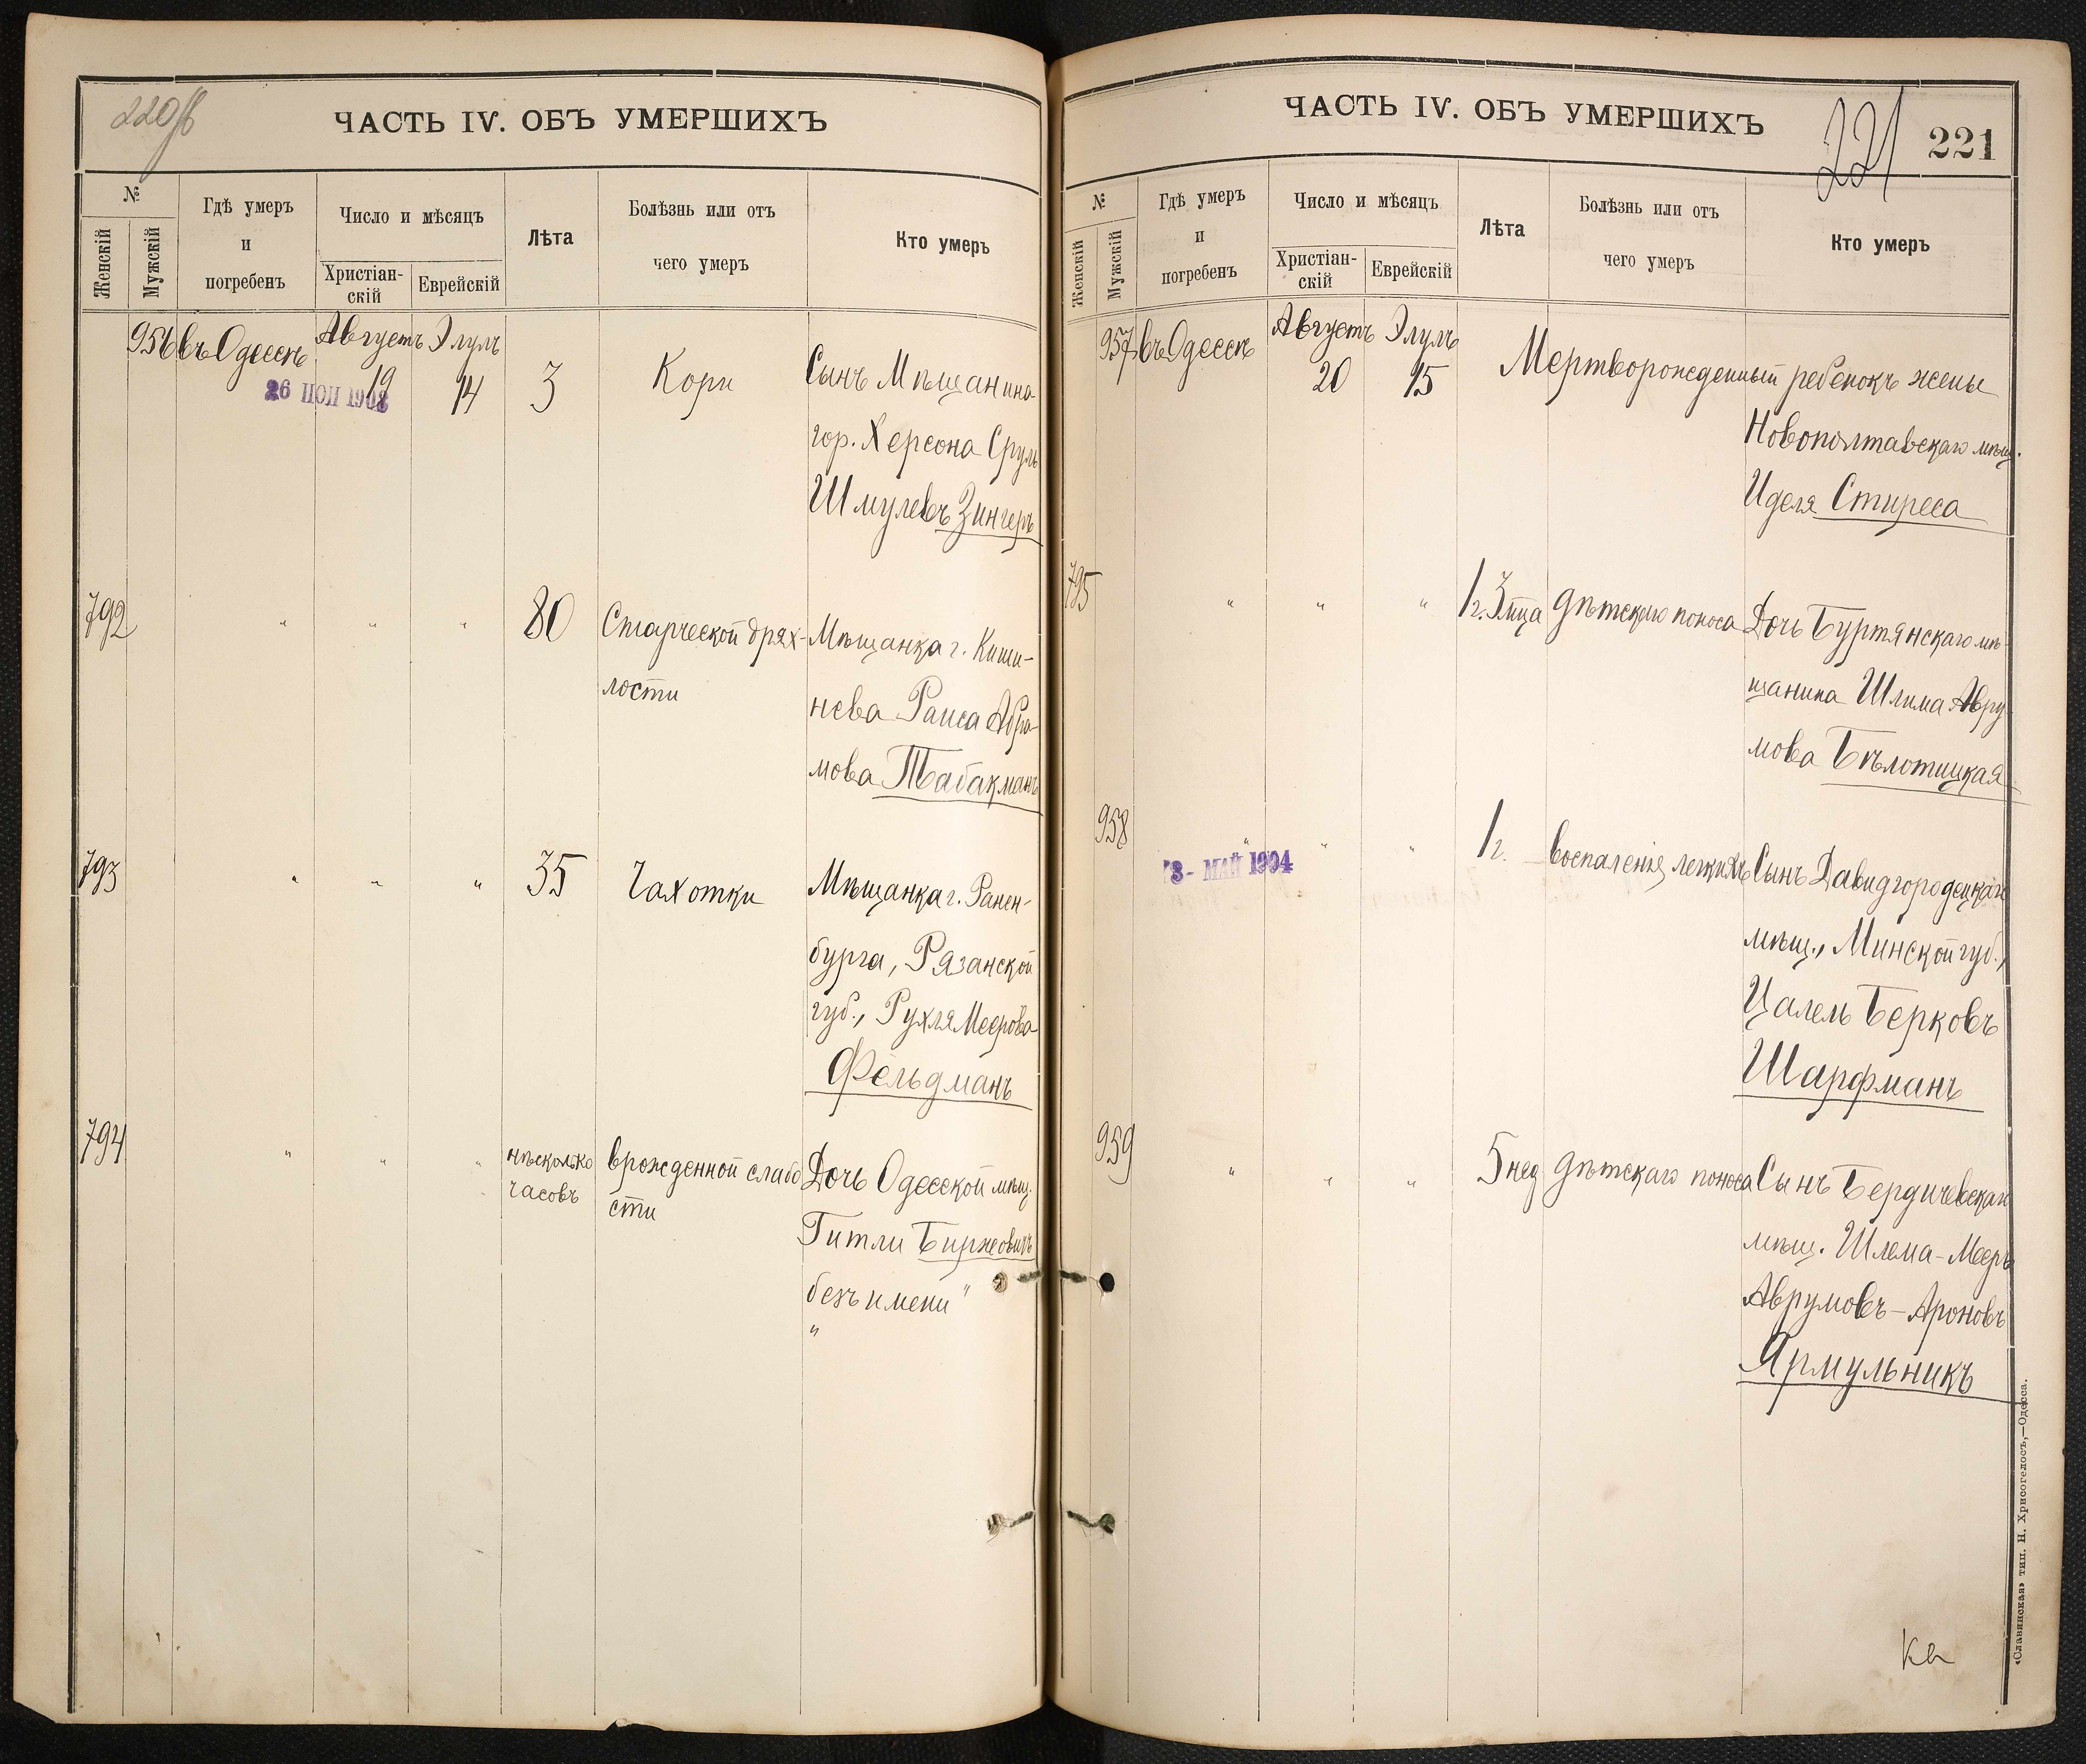 220об
ЧАСТЬ IV. ОБЪ УМЕРШИХЪ
№
Женскій
Мужскій
Гдѣ умеръ
и
погребенъ
Число и мѣсяцъ
Христіан-
скій
Еврейскій
Лѣта
Болѣзнь или отъ
чего умеръ
Кто умеръ
956 въ Одессѣ Августъ Элулъ
26 НОЯ 1902 19 14 3 Кори Сынъ Мѣщанина
гор. Херсона Сруль
Шмулевъ Зингеръ
792 " " " 80 Старческой дрях- Мѣщанка г. Киши-
лости
нева Раиса Абра-
мова Табакманъ
793 " " " 35 Чахотки Мѣщанка г. Ранен-
бурга, Рязанской
губ., Рухля Меерова
Фельдманъ
794 " " " нѣсколько врожденной слабо Дочь Одесской мѣщ.
часовъ сти
Гитли Биржовичъ
безъ имени "
"
ЧАСТЬ IV. ОБЪ УМЕРШИХЪ
221
221
№
Женскій
Мужскій
Гдѣ умеръ
и
погребенъ
Число и мѣсяцъ
Христіан-
скій
Еврейскій
Лѣта
Болѣзнь или отъ
чего умеръ
Кто умеръ
957 въ Одессѣ Августъ Элулъ
20 15 Мертворожденный ребенокъ жены
Новополтавскаго мѣщ.
Иделя Стиреса
795 " " " 1 г. 3 м-ца дѣтскаго поноса Дочь Буртянскаго мѣ-
щанина Шлима Авру
мова Бѣлотицкая
958 " " " 1 г. воспаленія легкихъ Сынъ Давидгородецкаго
13 - МАЙ 1904
мѣщ., Минской губ.,
Цалель Берковъ
Шарфманъ
959 " " " 5 нед дѣтскаго поноса Сынъ Бердичевскаго
мѣщ. Шлема-Мееръ
Аврумовъ-Ароновъ
Ярмульникъ
«Славянская» тип. Н. Хрисогелосъ,—Одесса.